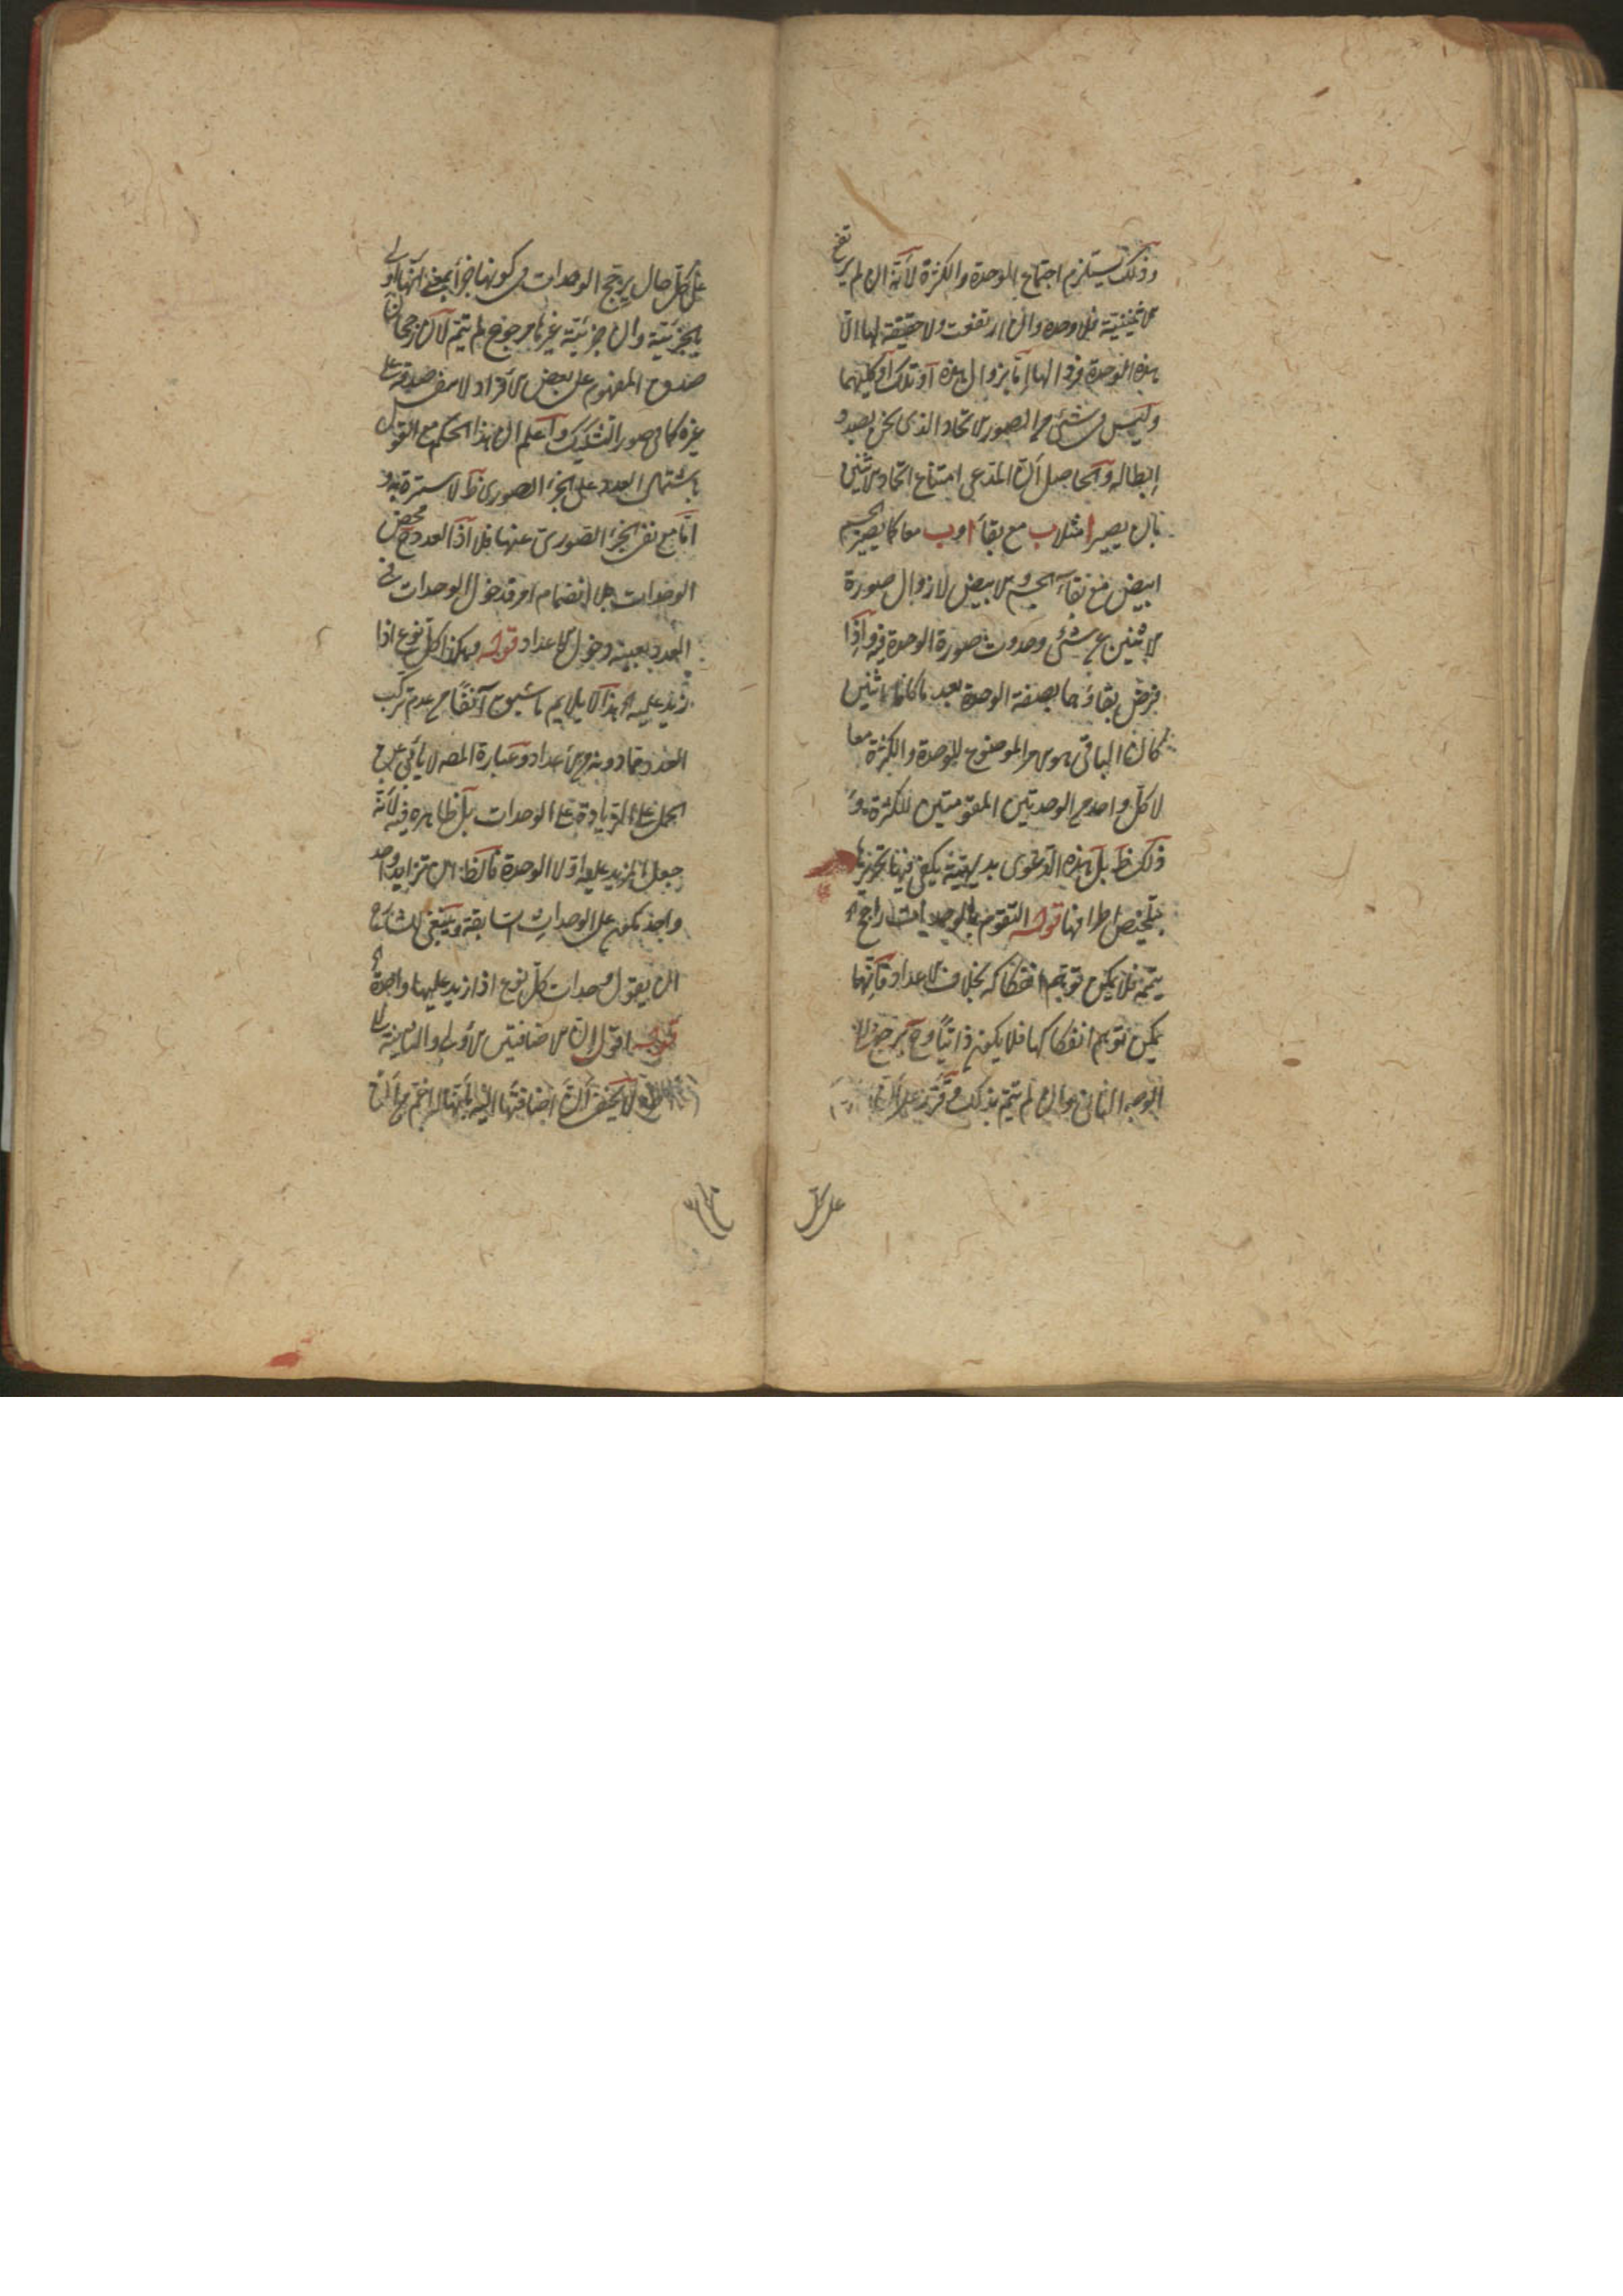 وذلك يستلزم اجتماع الوحدة والكثرة لأنه ان لم يرتفع
الاثنينية فلا وحدة وان ارتفعت ولا حقيقة لها الا
هذه الوحدة فزوالها إما بزوال هذه أو تلك أو كليهما
وليس في شئ من الصور الاتحاد الذى نحن بصدد
إبطاله والحاصل أن المدعى امتناع اتحاد الاثنين
بان يصير ا مثلا ب مع بقاء ا و ب معا كما يصير الجسم
ابيض مع بقاء الجسم والابيض لا زوال صورة
الاثنين عن شئ وحدوث صورة الوحدة فيه واذا
فرض بقاؤهما بصفة الوحدة بعد ما كانا اثنين
كان الباقي هو الامر الموضوع للوحدة والكثرة معا
لا كل واحد من الوحدتين المقومتين للكثرة و
ذلك ظ بل هذه الدعوى بديهية يكفى فيها تجريدها
بتلخيص اطرافها قوله التقوم بالوحدات راجح اه
يتمه فلا يمكن توهم انفكاكه بخلاف الاعداد فانها
يمكن توهم انفكاكها فلا يكون ذاتيا وح يرجع الا
الوجه الثانى وان لم يتم بذلك و قرر على ان
على كل حال يرجح الوحدات فى كونها جزأ بمعنى انها اولى
بالجزئية وان جزئية غيرها مرجوح لم يتم لان رجحان
صدق المفهوم على بعض الافراد لا ينفى صدقه على
غيره كما فى صور التشكيك واعلم ان هذا الحكم مع القول
باشتمال العدد على الجزء الصورى ظ لا سترة به و
اما مع نفى الجزء الصورى عنها فلا اذ العدد ح محض
الوحدات بلا انضمام امر فدخول الوحدات فى
العدد بعينه دخول الاعداد قوله وهكذا كل نوع اذا
زيد عليه اه هذا لا يلايم ما سبق آنفا من عدم تركب
العدد مما دونه من الاعداد وعبارة المصه لا يأبى عن
الحمل على الزيادة على الوحدات بل ظاهره فيه لأنه
جعل المزيد عليه اولا الوحدة فالظ ان تزايد واحد
واحد يكون على الوحدات السابقة وينبغى للشارح
ان يقول وحدات كل نوع اذا زيد عليها واحدة اه
قوله اقول ان الاضافتين الاولى والثانية
لا يخفى أن اضافتها اليه بأنها لا اعم من أن